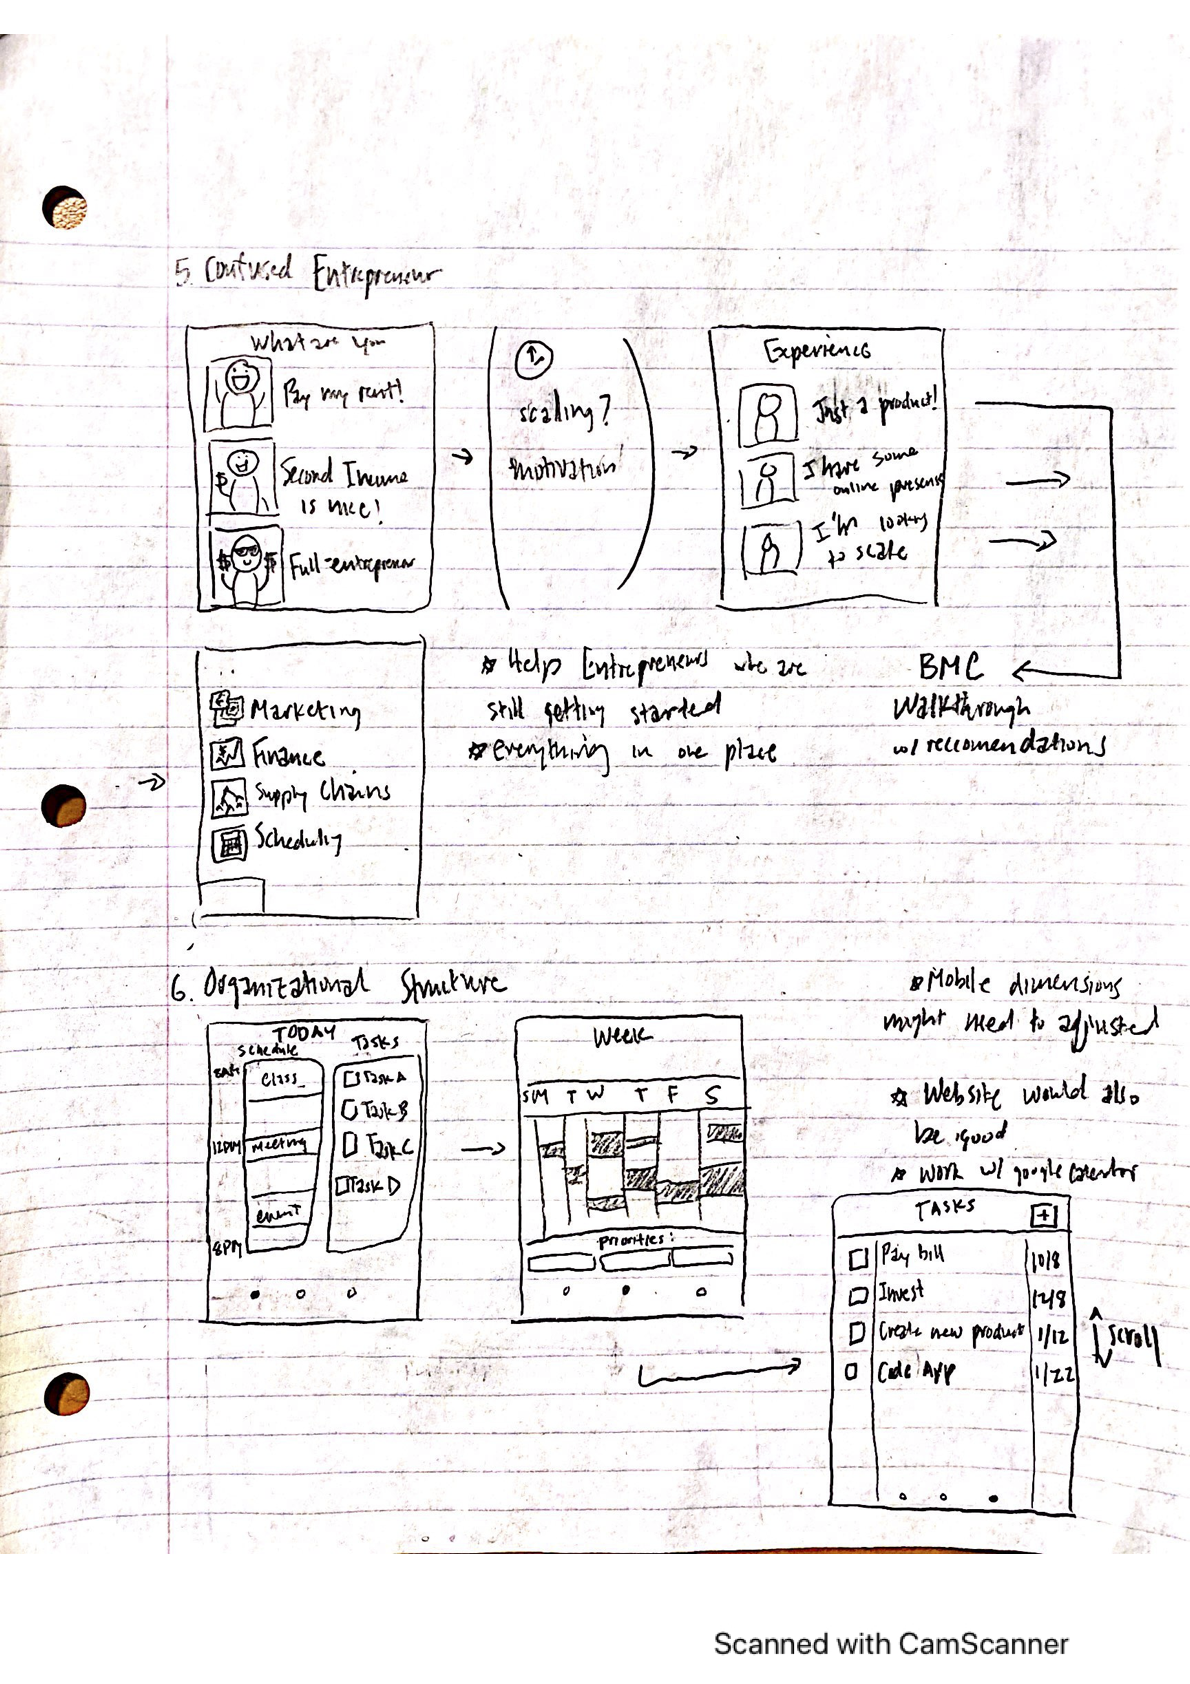 5. Confused Entrepreneur
What are you
Pay my rent!
Second Income
is nice!
Full-entrepreneur
scaling?
motivation
Experience
Just a product!
I have some
online presense
I'm looking
to scale
BMC
Walkthrough
w/ reccomendations
...
Marketing
Finance
Supply Chains
Scheduling
☆ Help Entrepreneurs who are
still getting started
☆ everything in one place
6. Organizational Structure
TODAY
Schedule
Tasks
8AM
Class
12PM
Meeting
event
8PM
Task A
Task B
Task C
Task D
Week
S M T W T F S
priorities:
☆ Mobile dimensions
might need to adjusted
☆ Website would also
be good
☆ Work w/ google calendar
TASKS +
Pay bill 10/8
Invest 12/8
Create new product 1/12
Code App 1/22
scroll
Scanned with CamScanner